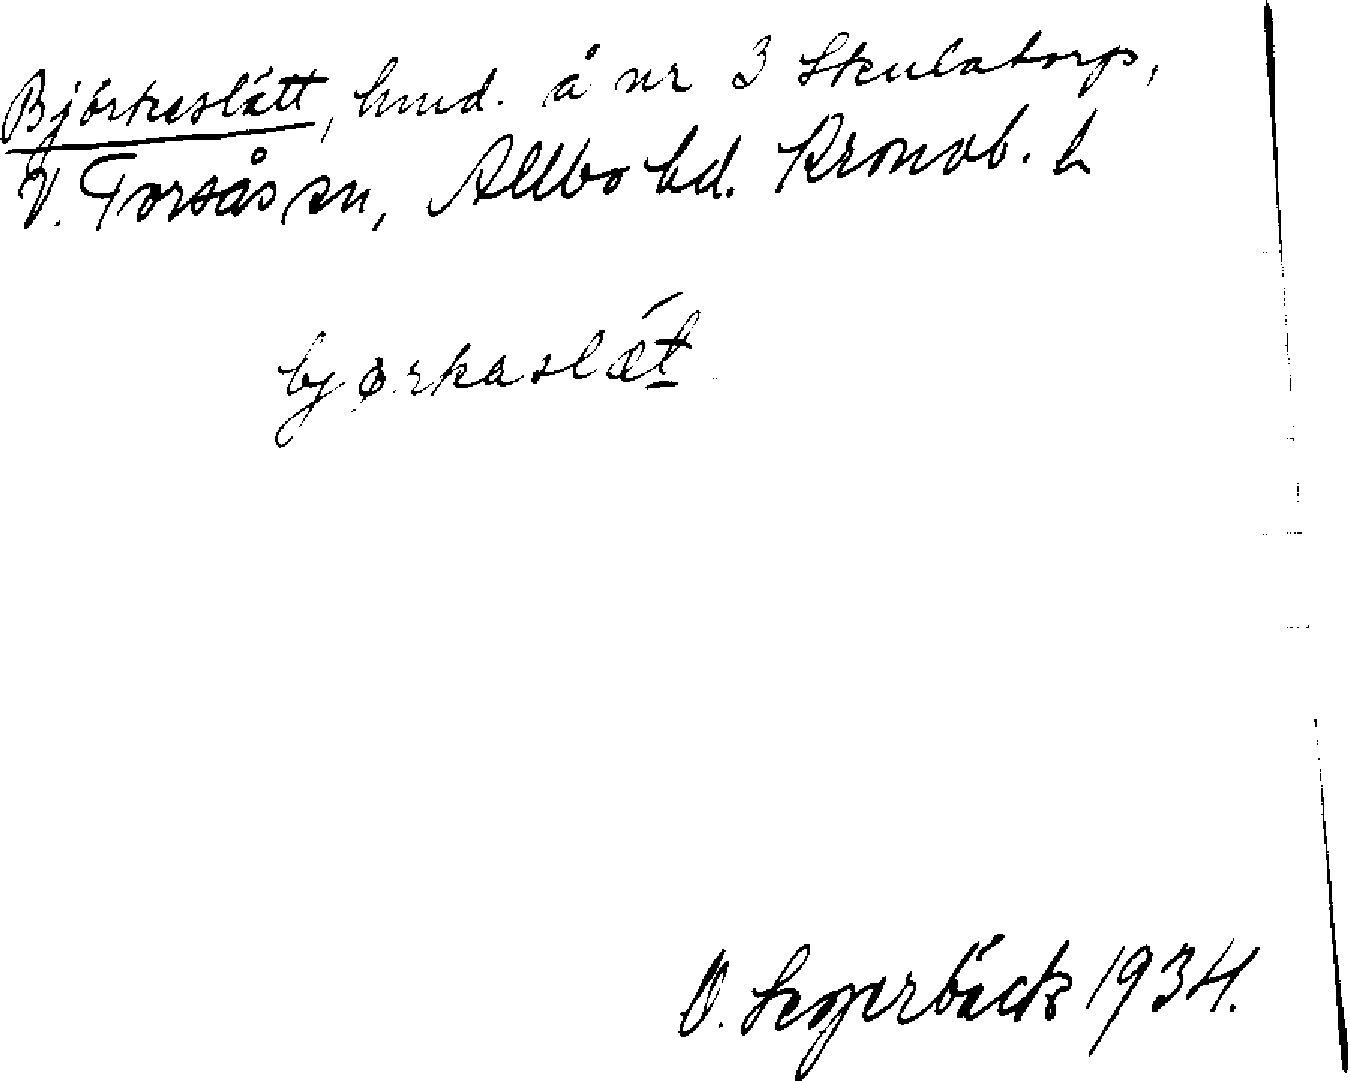 Björkeslätt, hmd. å nr 3 Skulatorp,
V. Torsås sn, Allbo hd. Kronob. L
bjørkaslæt
O. Segerbäck 1934.